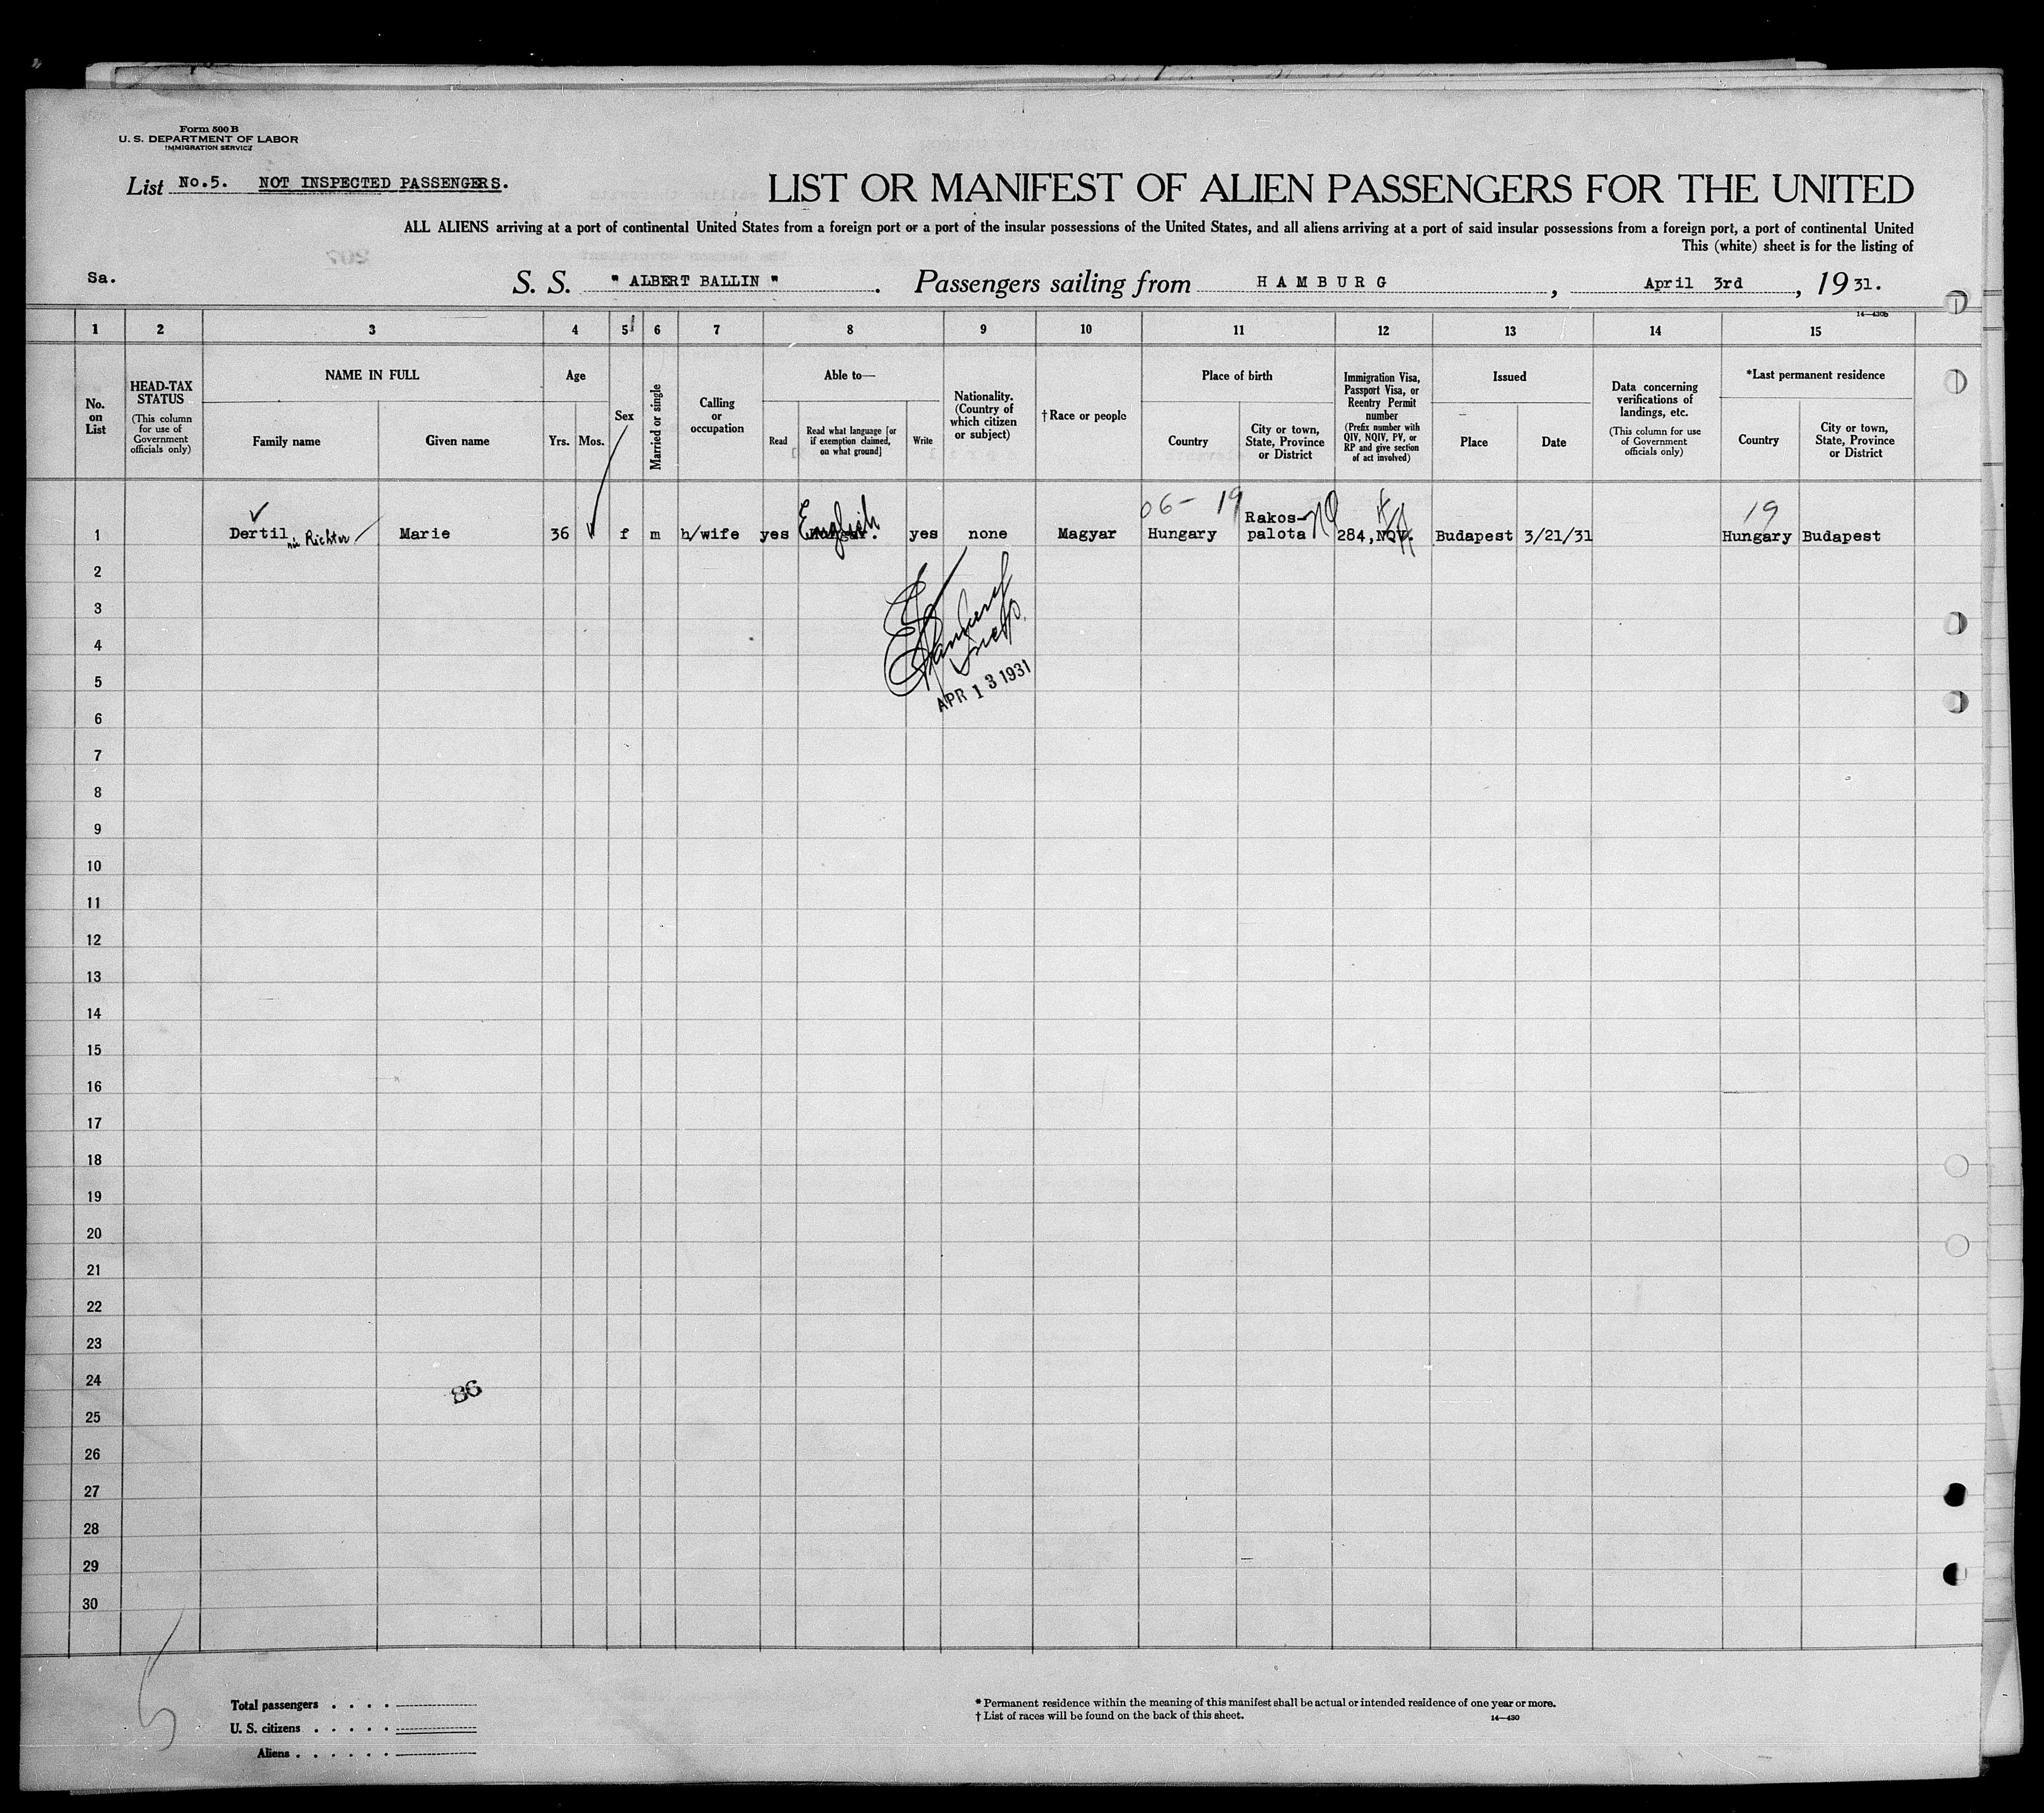 Form 500 B
U. S. DEPARTMENT OF LABOR
IMMIGRATION SERVICE
List No.5. NOT INSPECTED PASSENGERS.
LIST OR MANIFEST OF ALIEN PASSENGERS FOR THE UNITED
ALL ALIENS arriving at a port of continental United States from a foreign port or a port of the insular possessions of the United States, and all aliens arriving at a port of said insular possessions from a foreign port, a port of continental United
This (white) sheet is for the listing of
207
Sa.
S. S. " ALBERT BALLIN " . Passengers sailing from HAMBURG , April 3rd , 19 31.
14—430b
1 2 3 4 5 6 7 8 9 10 11 12 13 14 15
No. on List
HEAD-TAX STATUS
(This column for use of Government officials only)
NAME IN FULL
Family name
Given name
Age
Yrs.
Mos.
Sex
Married or single
Calling or occupation
Able to—
Read
Read what language [or if exemption claimed, on what ground]
Write
Nationality. (Country of which citizen or subject)
†Race or people
Place of birth
Country
City or town, State, Province or District
Immigration Visa, Passport Visa, or Reentry Permit number
(Prefix number with QIV, NQIV, PV, or RP and give section of act involved)
Issued
Place
Date
Data concerning verifications of landings, etc.
(This column for use of Government officials only)
*Last permanent residence
Country
City or town, State, Province or District
06- 19
19
English
Rakos-
1 Dertil née Richter Marie 36 f m h/wife yes yes none Magyar Hungary palota 284, NQV. Budapest 3/21/31 Hungary Budapest
2
3
4
5
APR 13 1931
6
7
8
9
10
11
12
13
14
15
16
17
18
19
20
21
22
23
24
86
25
26
27
28
29
30
5
Total passengers . . . .
U. S. citizens . . . . .
Aliens . . . . . .
* Permanent residence within the meaning of this manifest shall be actual or intended residence of one year or more.
† List of races will be found on the back of this sheet.
14—430